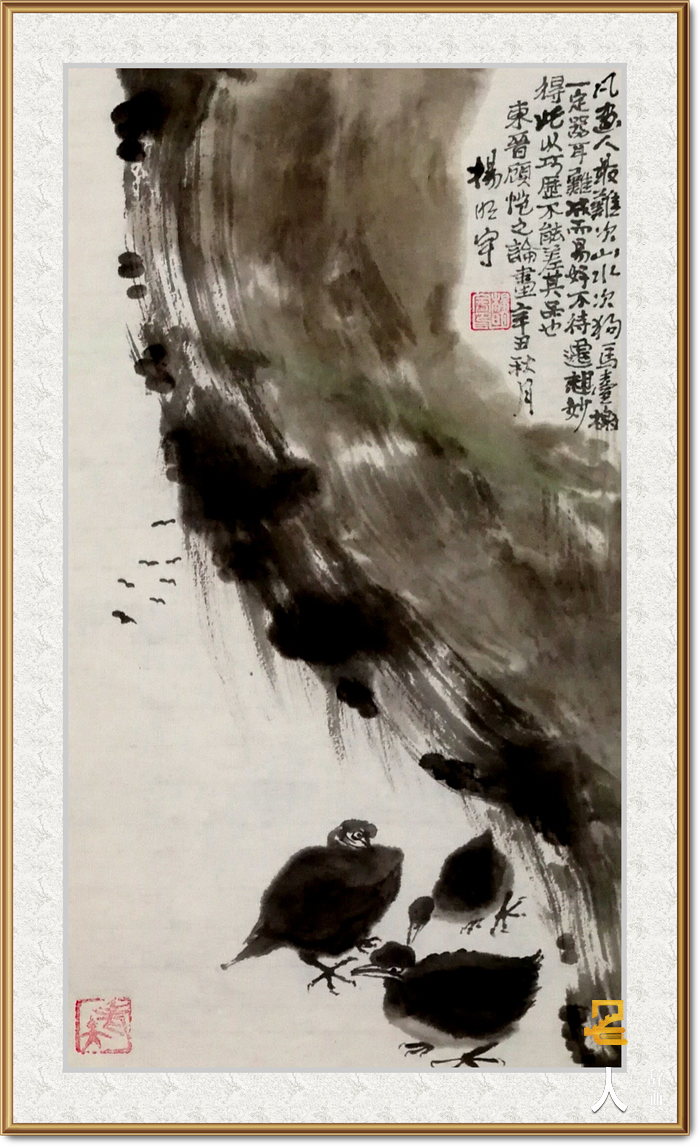 凡畫人最難次山水次狗馬臺榭
一定器耳難成而易好不待遷想妙
得此以巧歷不能差其品也
東晉顧愷之論畫 辛丑秋月
楊明守
名人